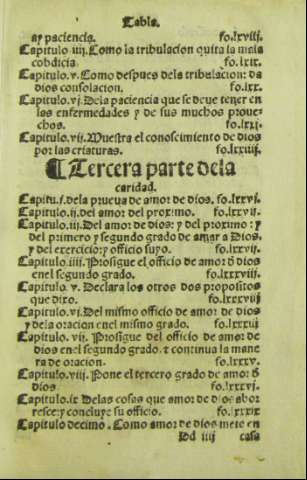 Tabla.
ay paciencia. fo.lxviii.
Capitulo .iiij. Como la tribulacion quita la mala
cobdicia. fo.lxix.
Capitulo. v. Como despues dela tribulacion: da
dios consolacion. fo.lxx.
Capitulo. vj. Dela paciencia que se deue tener en
las enfermedades y de sus muchos proue-
chos. fo.lxxj.
Capitulo. vij. Muestra el conoscimiento de dios
por las criaturas. fo.lxxiiij.
¶ Tercera parte dela
caridad.
Capitu. j. dela prueua de amor de dios. fo.lxxvj.
Capitulo. ij. del amor del proximo. fo.lxxvij.
Capitulo. iij. Del amor de dios: y del proximo: y
del primero y segundo grado de amar a Dios,
y del exercicio: y officio suyo. fo.lxxvij.
Capitulo. iiij. Prosigue el officio de amor đ dios
enel segundo grado. fo.lxxviij.
Capitulo. v. Declara los otros dos propositos
que dixo. fo.lxxxvij
Capitulo. vj. Del mismo officio de amor de dios
y dela oracion enel mismo grado. fo.lxxxiij
Capitulo. vij. Prosigue del officio de amor de
dios enel segundo grado. t continua la mane
ra de oracion. fo.lxxxv.
Capitulo. viij. Pone el tercero grado de amar đ
dios fo.lxxxvj.
Capitulo. ix Delas cosas que amor de dios abor
resce: y concluye su officio. fo.lxxxix
Capitulo decimo. Como amor de dios mete en
Dd iiij casa